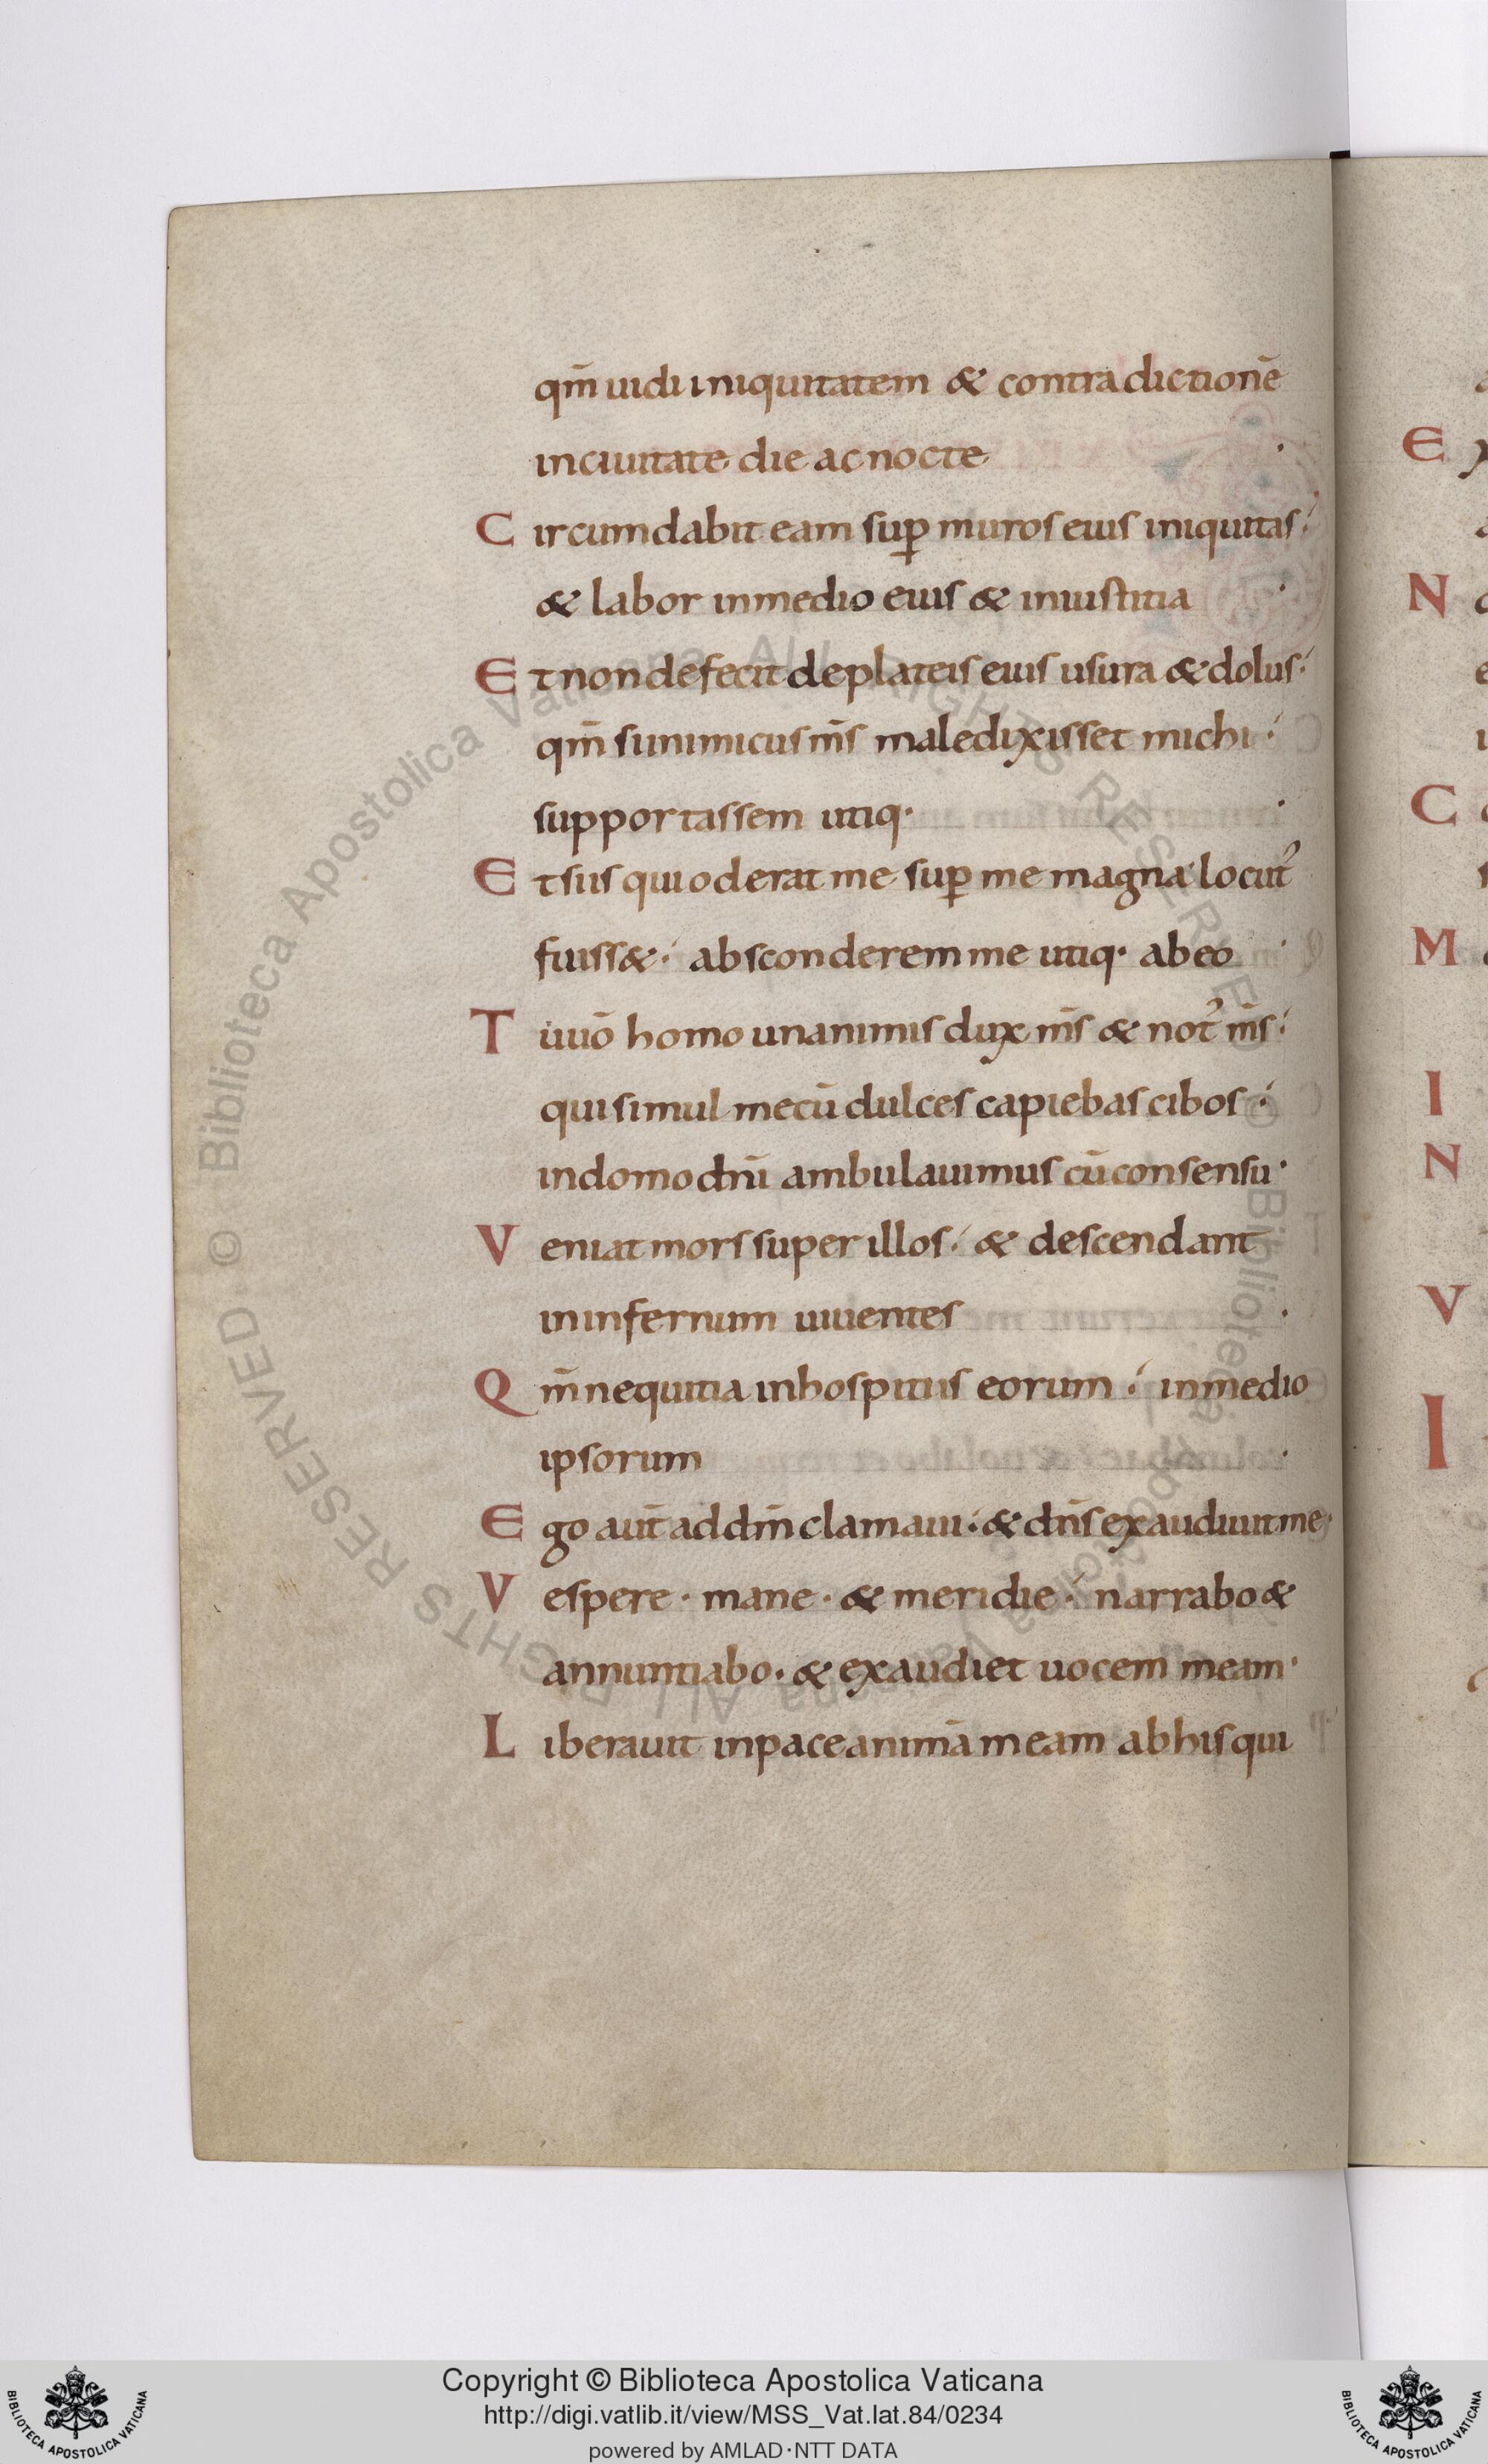 qm̄ uidi iniquitatem & contradictionē
inciuitate die ac nocte ·
Circumdabit eam sup̄ muros eius iniquitas·
& labor inmedio eius & iniustitia ·
Et non defecit deplateis eius usura & dolus·
qm̄ siinimicus m̄s maledixisset michi ·
supportassem utiq· ·
Et sus qui oderat me sup̄ me magna locut᾽
fuiss& · absconderem me utiq· ab eo ·
Tu uō homo unanimis dux m̄s & not᾽ m̄s·
qui simul mecū dulces capiebas cibos ·
indomo dn̄i ambulauimus cū consensu·
Veniat mors super illos· & descendant
ininfernum uiuentes ·
Qm̄ nequitia inhospitiis eorum · inmedio
ipsorum ·
Ego aut̄ addm̄ clamaui· & dn̄s exaudiuit me·
Vespere · mane · & meridie · narrabo &
annuntiabo· & exaudiet uocem meam·
Liberauit inpace animā meam ab his qui
E
N
C
M
I
N
V
I
© Biblioteca Apostolica Vaticana ALL RIGHTS RESERVED
Copyright © Biblioteca Apostolica Vaticana
http://digi.vatlib.it/view/MSS_Vat.lat.84/0234
powered by AMLAD·NTT DATA
BIBLIOTECA APOSTOLICA VATICANA
BIBLIOTECA APOSTOLICA VATICANA